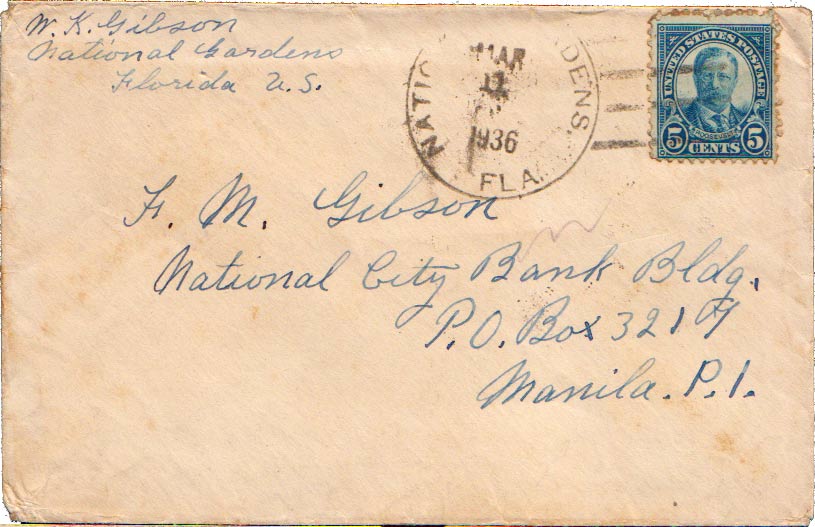 W. K. Gibson
National Gardens
Florida U.S.
MAR
1936
FLA.
UNITED STATES POSTAGE
ROOSEVELT
5 CENTS 5
F. M. Gibson
National City Bank Bldg.
P.O. Box
Manila. P.I.